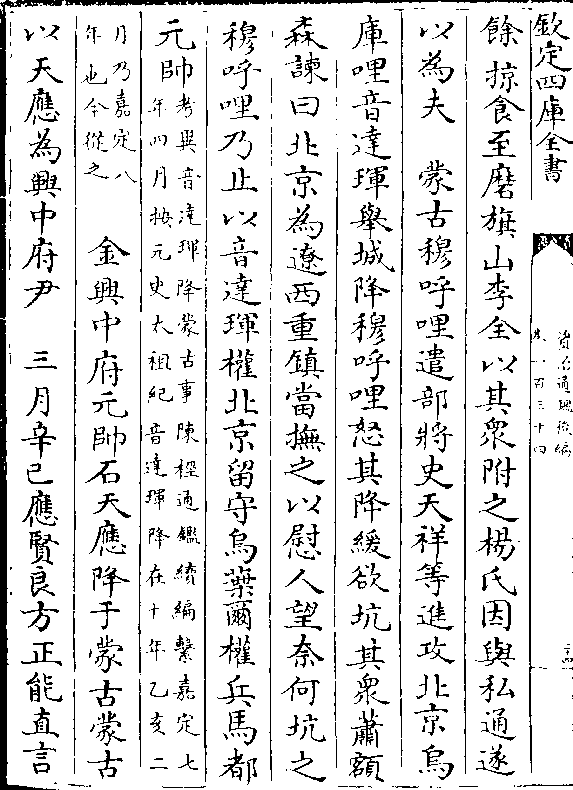 欽定四庫全書
資治通鑑後編
卷一百三十四
餘掠食至磨旗山李全以其衆附之楊氏因與私通遂
以為夫　蒙古穆呼哩遣部將史天祥等進攻北京烏
庫哩音達琿舉城降穆呼哩怒其降緩欲坑其衆蕭額
森諫曰北京為遼西重鎮當撫之以慰人望奈何坑之
穆呼哩乃止以音達琿權北京留守烏葉爾權兵馬都
元帥考異音達琿降蒙古事陳桱通鑑續編繫嘉定七
年四月按元史太祖紀音達琿降在十年乙亥二
月乃嘉定八
年也今從之　金興中府元帥石天應降于蒙古蒙古
以天應為興中府尹　三月辛巳應賢良方正能直言